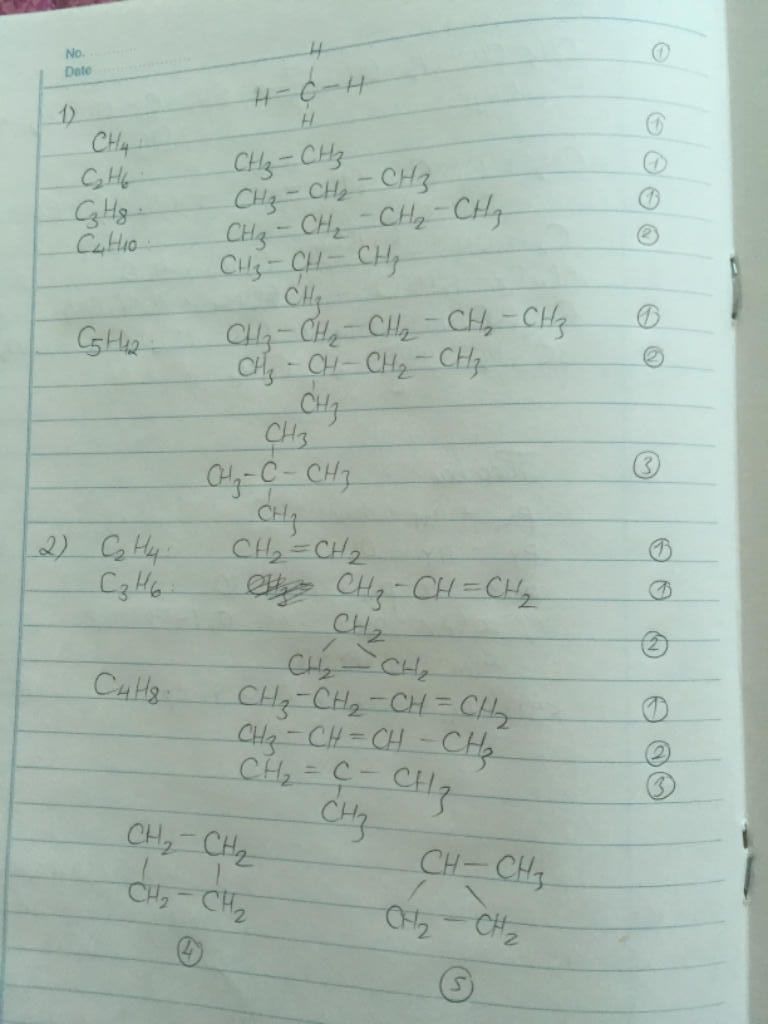 No.
Date
H
①
1)
H-C-H
H
CH4:
①
C2H6: CH3-CH3 ①
C3H8: CH3-CH2-CH3 ①
C4H10: CH3-CH2-CH2-CH3 ②
CH3-CH-CH3
CH3
C5H12: CH3-CH2-CH2-CH2-CH3 ①
CH3-CH-CH2-CH3 ②
CH3
CH3
CH3-C-CH3 ③
CH3
2) C2H4: CH2=CH2 ①
C3H6: CH3-CH=CH2 ①
CH2
②
CH2-CH2
C4H8: CH3-CH2-CH=CH2 ①
CH3-CH=CH-CH3 ②
CH2=C-CH3 ③
CH3
CH2-CH2
CH-CH3
CH2-CH2
CH2-CH2
④
⑤